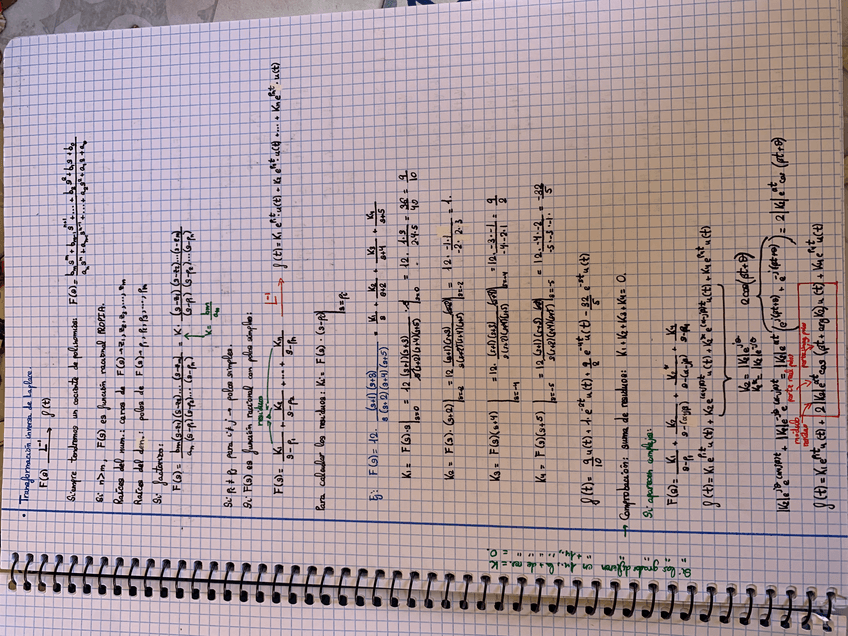 • Transformación inversa de Laplace:
F(s) L⁻¹→ f(t)
Siempre tendremos un cociente de polinomios: F(s) = (bₘsᵐ + bₘ₋₁sᵐ⁻¹ + ... + b₂s² + b₁s + b₀)/(aₙsⁿ + aₙ₋₁sⁿ⁻¹ + ... + a₂s² + a₁s + a₀)
Si n>m, F(s) es función racional PROPIA.
Raíces del num: ceros de F(s) → z₁, z₂, z₃, ..., zₘ
Raíces del den: polos de F(s) → p₁, p₂, p₃, ..., pₙ
Si factorizo:
F(s) = bₘ(s-z₁)(s-z₂)...(s-zₘ)/aₙ(s-p₁)(s-p₂)...(s-pₙ) = K · (s-z₁)(s-z₂)...(s-zₘ)/(s-p₁)(s-p₂)...(s-pₙ)
K = bₘ/aₙ
Si pᵢ ≠ pⱼ para ∀i,j → polos simples.
Si F(s) es función racional con polos simples:
residuos
F(s) = K₁/(s-p₁) + K₂/(s-p₂) + ... + Kₙ/(s-pₙ) L⁻¹→ f(t) = K₁e^(p₁t)·u(t) + K₂e^(p₂t)·u(t) + ... + Kₙe^(pₙt)·u(t)
Para calcular los residuos: Kᵢ = F(s)·(s-pᵢ)|s=pᵢ
Ej: F(s) = 12 · (s+1)(s+3)/s(s+2)(s+4)(s+5) = K₁/s + K₂/(s+2) + K₃/(s+4) + K₄/(s+5)
K₁ = F(s)·s|s=0 = 12 (s+1)(s+3)/s(s+2)(s+4)(s+5) · s|s=0 = 12 · 1·3/2·4·5 = 36/40 = 9/10
K₂ = F(s)·(s+2)|s=-2 = 12 (s+1)(s+3)(s+2)/s(s+2)(s+4)(s+5)|s=-2 = 12 · -1·1/-2·2·3 = 1.
K₃ = F(s)(s+4)|s=-4 = 12 · (s+1)(s+3)(s+4)/s(s+2)(s+4)(s+5)|s=-4 = 12 · -3·-1/-4·-2·1 = 9/2
K₄ = F(s)(s+5)|s=-5 = 12 (s+1)(s+3)(s+5)/s(s+2)(s+4)(s+5)|s=-5 = 12 · -4·-2/-5·-3·-1 = -32/5
f(t) = 9/10 u(t) + 1·e^(-2t) u(t) + 9/2 e^(-4t) u(t) - 32/5 e^(-5t) u(t)
→ Comprobación: suma de residuos: K₁+K₂+K₃+K₄ = 0.
Si aparecen complejos:
F(s) = K₁/(s-p₁) + K₂/(s-(α+jβ)) + K₂*/(s-(α-jβ)) + K₄/(s-p₄)
f(t) = K₁e^(p₁t) u(t) + K₂e^((α+jβ)t) u(t) + K₂* e^((α-jβ)t) u(t) + K₄e^(p₄t) u(t)
K₂ = |K₂|e^(jθ)
K₂* = |K₂|e^(-jθ)
2cos(βt+θ)
|K₂|e^(jθ) e^((α+jβ)t) + |K₂|e^(-jθ) e^((α-jβ)t) = |K₂|e^(αt) (e^(j(βt+θ)) + e^(-j(βt+θ))) = 2|K₂|e^(αt) cos(βt+θ)
parte real polo
f(t) = K₁e^(p₁t) u(t) + 2|K₂|e^(αt) cos(βt + arg K₂) u(t) + K₄e^(p₄t) u(t)